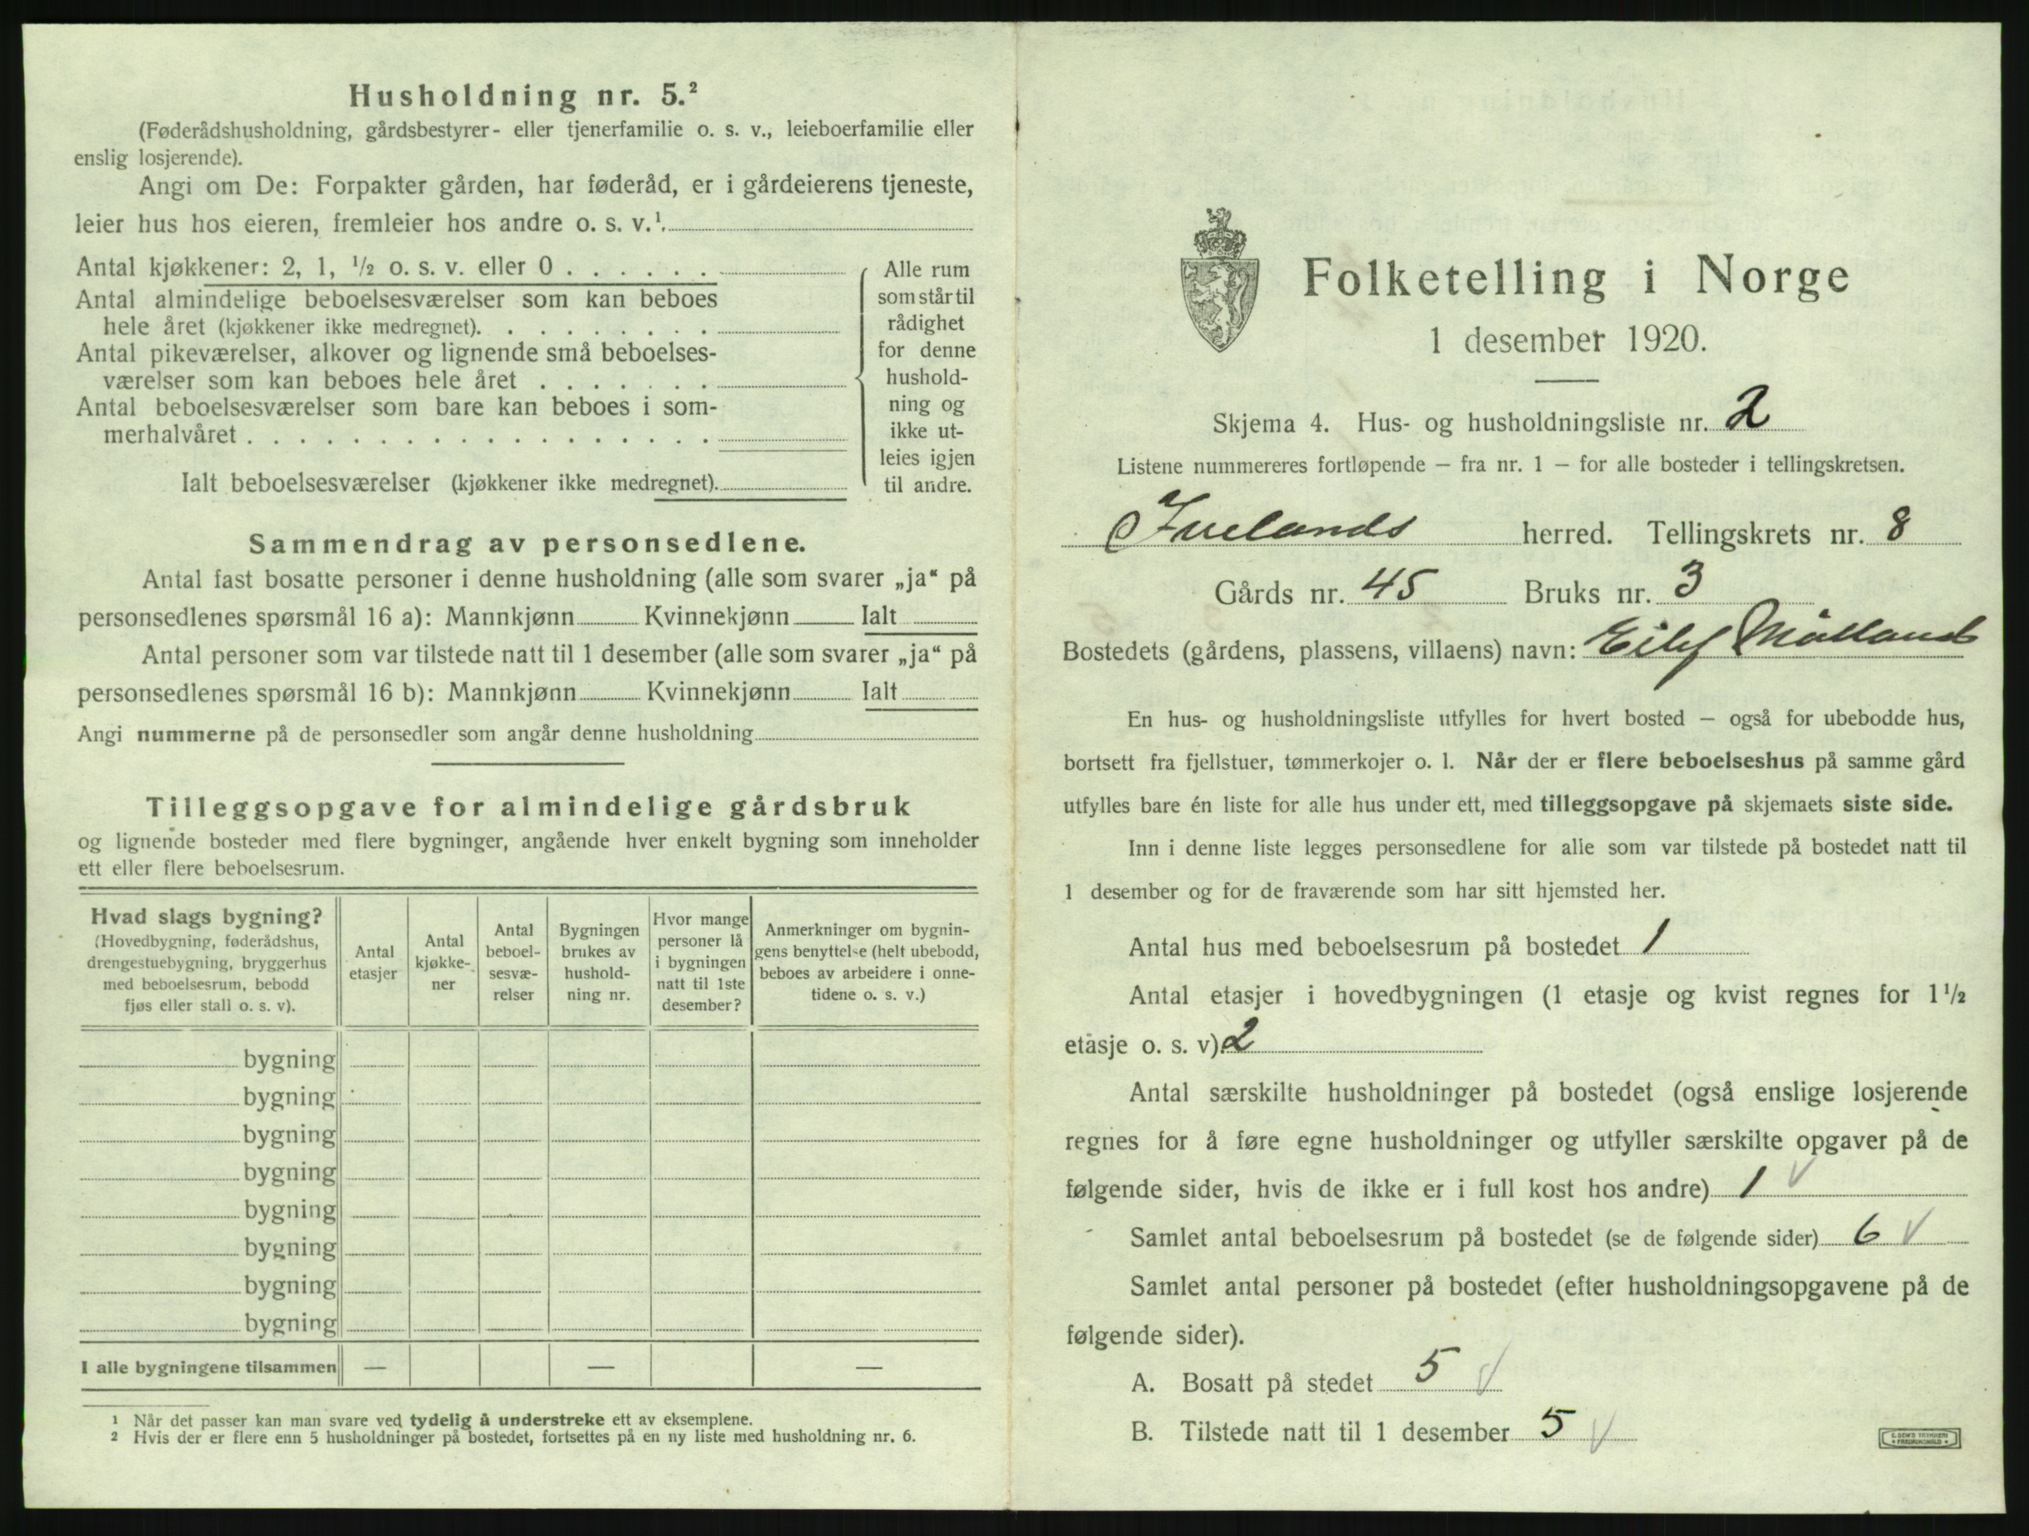 Husholdning nr. 5.²
(Føderådshusholdning, gårdsbestyrer- eller tjenerfamilie o. s. v., leieboerfamilie eller
enslig losjerende).
Angi om De: Forpakter gården, har føderåd, er i gårdeierens tjeneste,
leier hus hos eieren, fremleier hos andre o. s. v.¹.
Antal kjøkkener: 2, 1, ½ o. s. v. eller 0 . . . . . .
Antal almindelige beboelsesværelser som kan beboes
hele året (kjøkkener ikke medregnet). . . . . . . . .
Antal pikeværelser, alkover og lignende små beboelses-
værelser som kan beboes hele året . . . . . . .
Antal beboelsesværelser som bare kan beboes i som-
merhalvåret . . . . . . . . . . . . . . . . . .
Ialt beboelsesværelser (kjøkkener ikke medregnet).
Alle rum
som står til
rådighet
for denne
hushold-
ning og
ikke ut-
leies igjen
til andre.
Sammendrag av personsedlene.
Antal fast bosatte personer i denne husholdning (alle som svarer „ja“ på
personsedlenes spørsmål 16 a): Mannkjønn Kvinnekjønn Ialt
Antal personer som var tilstede natt til 1 desember (alle som svarer „ja“ på
personsedlenes spørsmål 16 b): Mannkjønn Kvinnekjønn Ialt
Angi nummerne på de personsedler som angår denne husholdning
Tilleggsopgave for almindelige gårdsbruk
og lignende bosteder med flere bygninger, angående hver enkelt bygning som inneholder
ett eller flere beboelsesrum.
Hvad slags bygning?
(Hovedbygning, føderådshus,
drengestuebygning, bryggerhus
med beboelsesrum, bebodd
fjøs eller stall o. s. v).
Antal
etasjer
Antal
kjøkke-
ner
Antal
beboel-
sesvæ-
relser
Bygningen
brukes av
hushold-
ning nr.
Hvor mange
personer lå
i bygningen
natt til 1ste
desember?
Anmerkninger om bygnin-
gens benyttelse (helt ubebodd,
beboes av arbeidere i onne-
tidene o. s. v.)
bygning
bygning
bygning
bygning
bygning
bygning
bygning
bygning
I alle bygningene tilsammen — — —
¹ Når det passer kan man svare ved tydelig å understreke ett av eksemplene.
² Hvis der er flere enn 5 husholdninger på bostedet, fortsettes på en ny liste med husholdning nr. 6.
Folketelling i Norge
1 desember 1920.
Skjema 4. Hus- og husholdningsliste nr. 2
Listene nummereres fortløpende — fra nr. 1 — for alle bosteder i tellingskretsen.
Ivelands herred. Tellingskrets nr. 8
Gårds nr. 45 Bruks nr. 3
Bostedets (gårdens, plassens, villaens) navn: Eilef Mølland
En hus- og husholdningsliste utfylles for hvert bosted — også for ubebodde hus,
bortsett fra fjellstuer, tømmerkojer o. l. Når der er flere beboelseshus på samme gård
utfylles bare én liste for alle hus under ett, med tilleggsopgave på skjemaets siste side.
Inn i denne liste legges personsedlene for alle som var tilstede på bostedet natt til
1 desember og for de fraværende som har sitt hjemsted her.
Antal hus med beboelsesrum på bostedet 1
Antal etasjer i hovedbygningen (1 etasje og kvist regnes for 1½
etasje o. s. v). 2
Antal særskilte husholdninger på bostedet (også enslige losjerende
regnes for å føre egne husholdninger og utfyller særskilte opgaver på de
følgende sider, hvis de ikke er i full kost hos andre) 1 √
Samlet antal beboelsesrum på bostedet (se de følgende sider) 6 √
Samlet antal personer på bostedet (efter husholdningsopgavene på de
følgende sider).
A. Bosatt på stedet 5 √
B. Tilstede natt til 1 desember 5 √